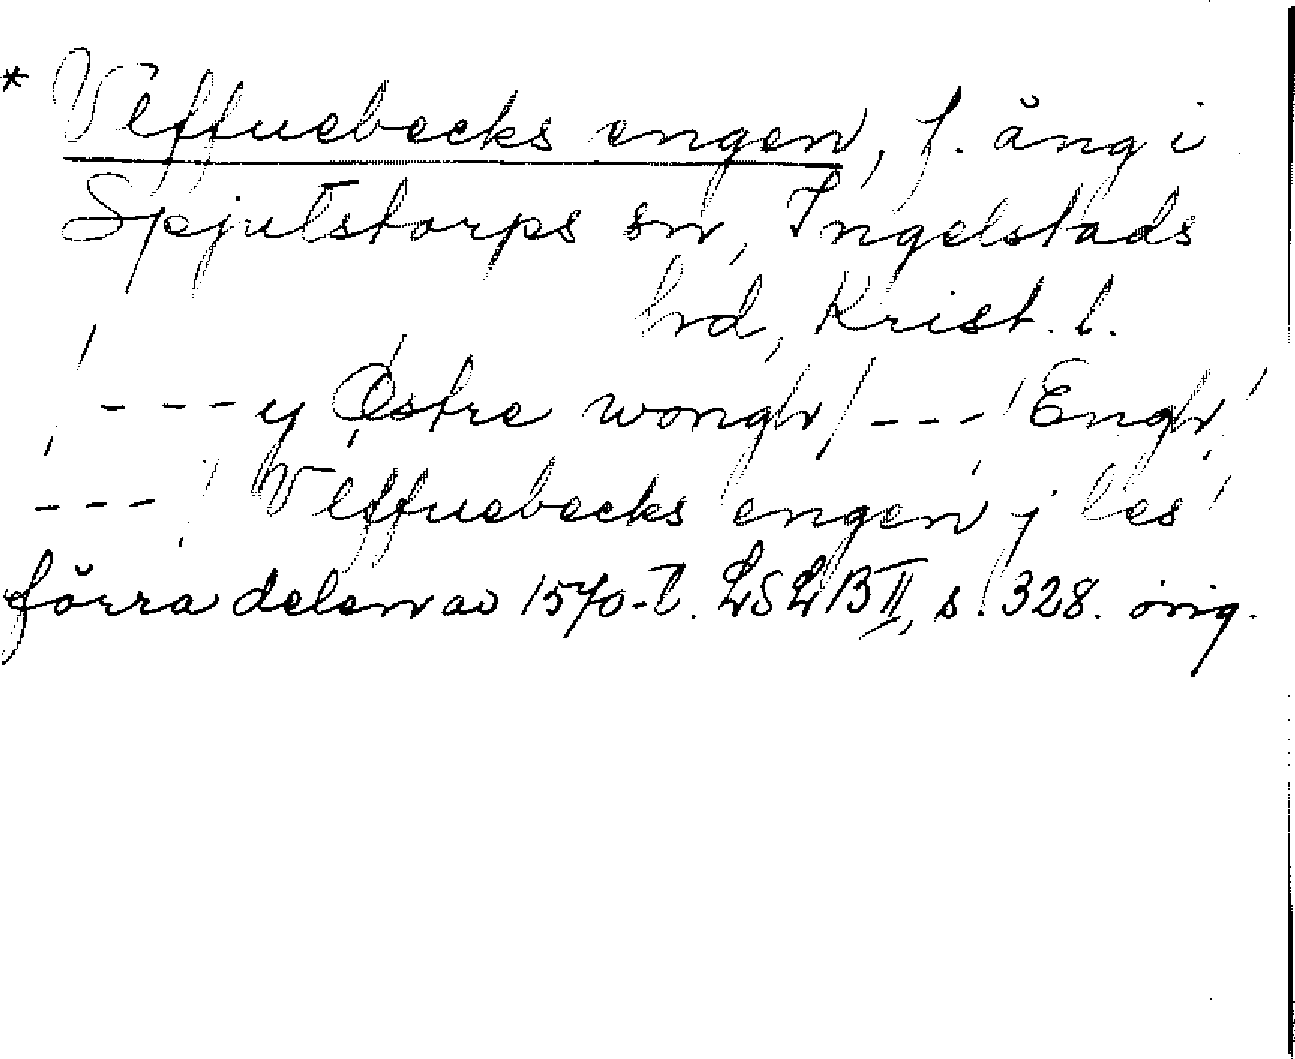 * Vleffuebecks engen, f. äng i
Spjutstorps sn, Ingelstads
hrd, Krist. l.
/ --- y Østre wongh / --- / Engh /
--- / Vleffuebecks engen j læs /
förra delen av 1570-t. LSLB II, s. 328. orig.